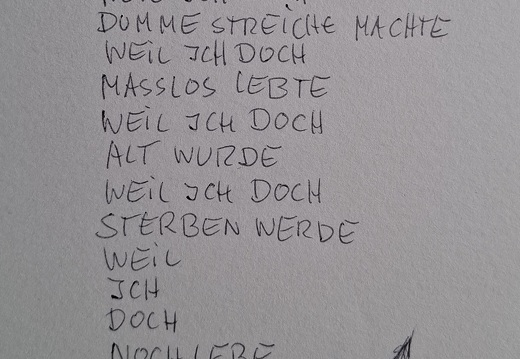 DUMME STREICHE MACHTE
WEIL ICH DOCH
MASSLOS LEBTE
WEIL ICH DOCH
ALT WURDE
WEIL ICH DOCH
STERBEN WERDE
WEIL
ICH
DOCH
NOCH LEBE